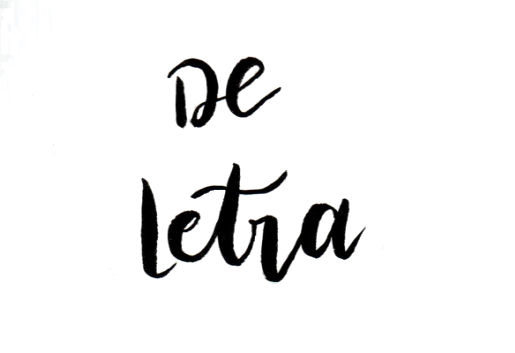 De
letra